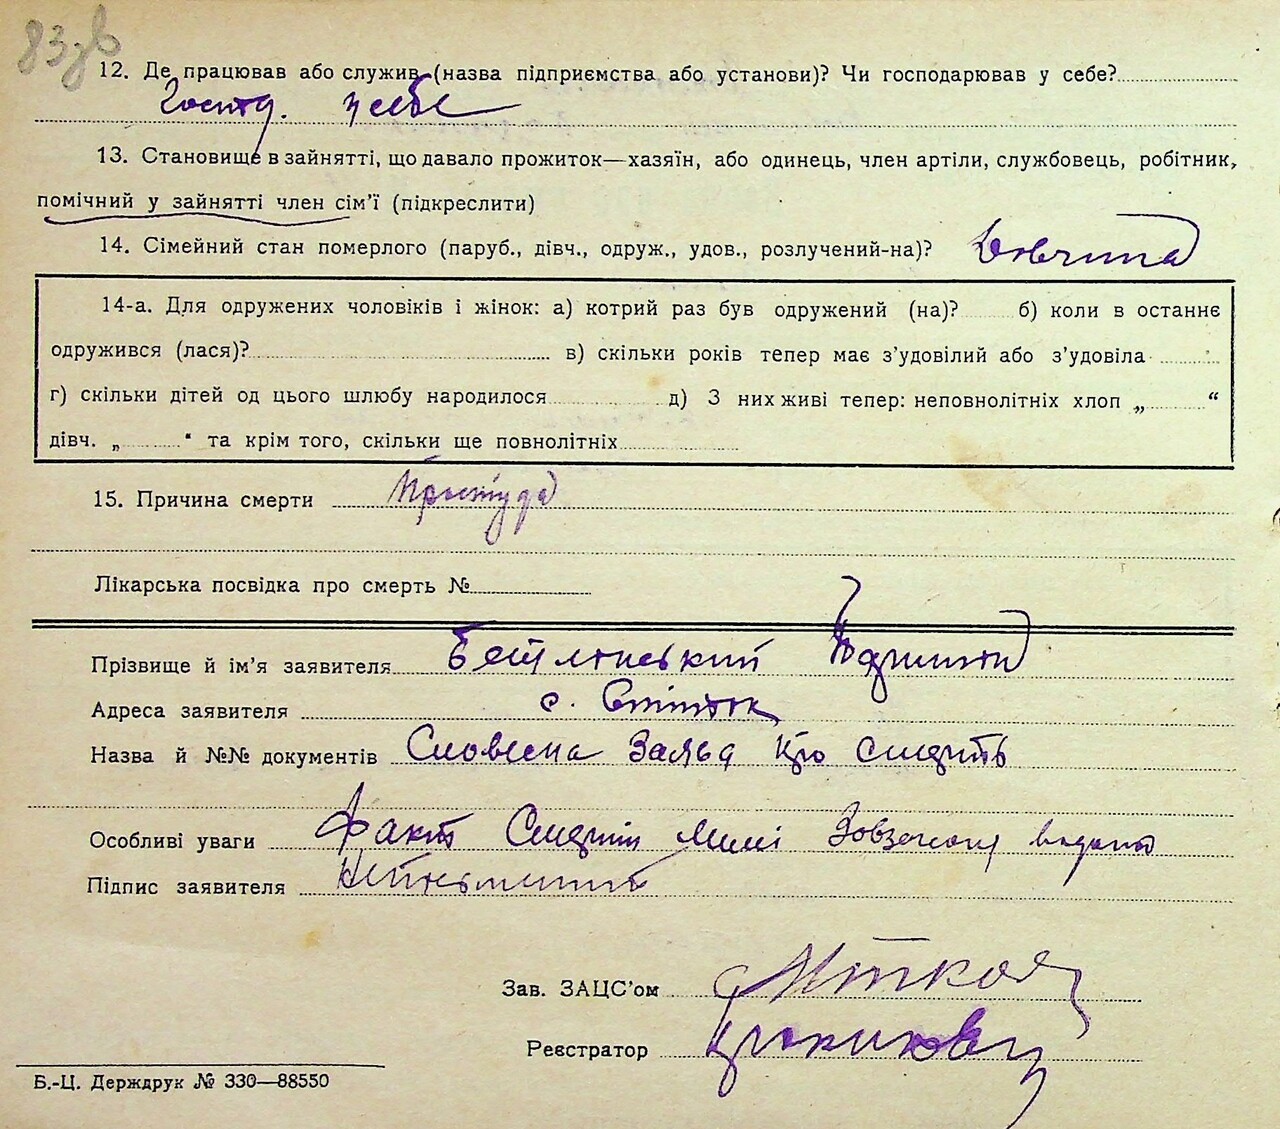 83зв
12. Де працював або служив (назва підприємства або установи)? Чи господарював у себе?
Господ. у себе
13. Становище в зайнятті, що давало прожиток—хазяїн, або одинець, член артіли, службовець, робітник,
помічний у зайнятті член сім'ї (підкреслити)
14. Сімейний стан померлого (паруб., дівч., одруж., удов., розлучений-на)? Дівчина
14-а. Для одружених чоловіків і жінок: а) котрий раз був одружений (на)? б) коли в останнє
одружився (лася)? в) скільки років тепер має з'удовілий або з'удовіла
г) скільки дітей од цього шлюбу народилося д) З них живі тепер: неповнолітніх хлоп „ “
дівч. „ “ та крім того, скільки ще повнолітніх
15. Причина смерти Простуда
Лікарська посвідка про смерть №
Прізвище й ім'я заявителя
Адреса заявителя с.
Назва й №№ документів Словесна Заява про смерть
Особливі уваги Факт Смерти
Підпис заявителя Неписьменний
Зав. ЗАЦС'ом
Реєстратор
Б.-Ц. Держдрук № 330—88550